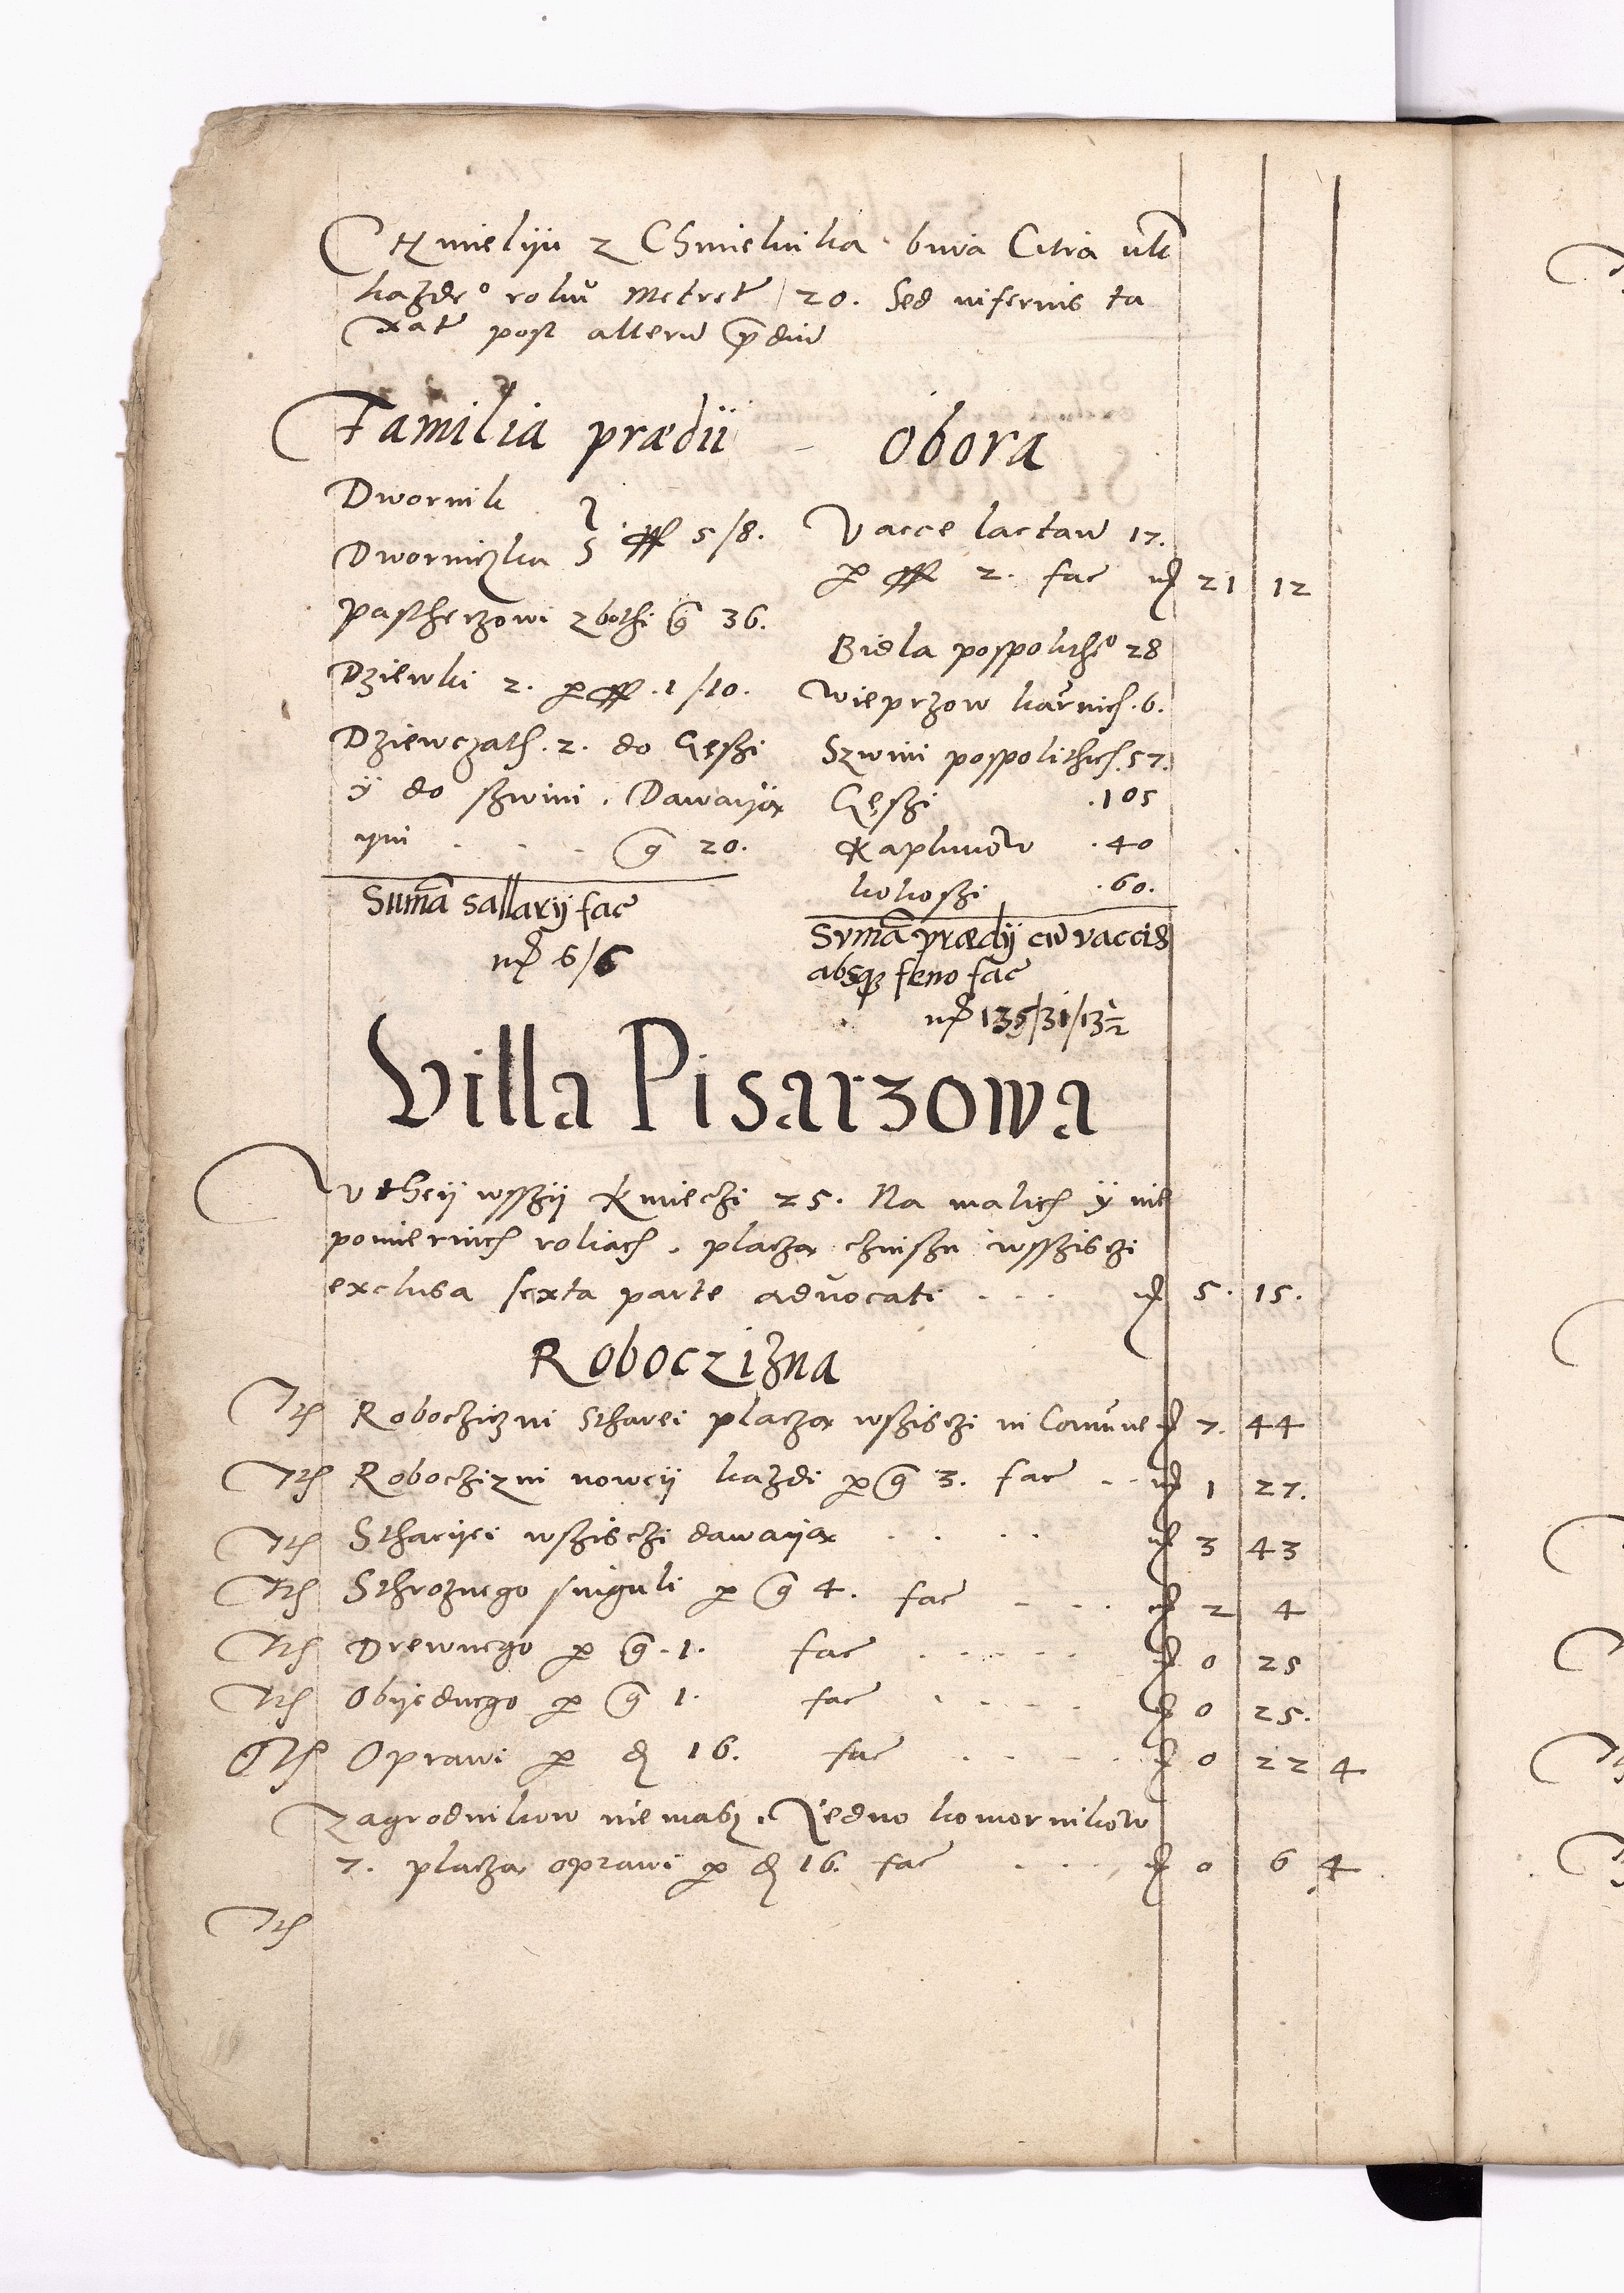 Chmielyu z Chmielnika bywa Citra vlt
każde° roku Metret 20. Sed inferius ta
xat post alteru pdiu
Familia prædii
Dwornik
Dworniczka ff 5/8.
Pastherzowi zbothi g 36.
Dziewki 2. p ff .1/10.
Dziewczath .2. do Gęsźi
ÿ do szwini . Dawayą
ym . . . g 20.
Suma sallarij fac
mꝝ 6/6
Obora
Vacce lactan 17.
p ff 2. fac mꝝ 21 12
Bidla pospolithe° 28
Wieprzow karmich .6.
Szwini pospolithich .57.
Gęsźi .105
Kaplunow .40
kokoszi .60.
Suma prædij cu vaccis
absq feno fac
mꝝ 135/31/13½
Villa Pisarzowa
V theÿ wsszÿ Kmieczi 25. Na malich ÿ nie
pomiernich roliach . placzą czinszu wsszisczi
exclusa sexta parte advocati . . . mꝝ 5. 15.
Roboczizna
Ith Roboczizni Stharei placzą wszisczi in Comune mꝝ 7. 44
Ith Roboczizni noweÿ każdi p g 3. fac . . mꝝ 1 27.
Ith Stharÿei wszisczi dawayą . . . . mꝝ 3 43
Ith Sthroznego singuli p g 4. fac . . . mꝝ 2 4
Ith Drewnego p g .1. fac . . . . . mꝝ 0 25
Ith Obÿednego p g 1. fac . . . . mꝝ 0 25.
Ith Oprawi p d 16. fac . . . . mꝝ 0 22 4
Zagrodnikow niemasz . Jedno komornikow
7. placzą oprawi p d 16. fac . . . mꝝ 0 6 4
Ith